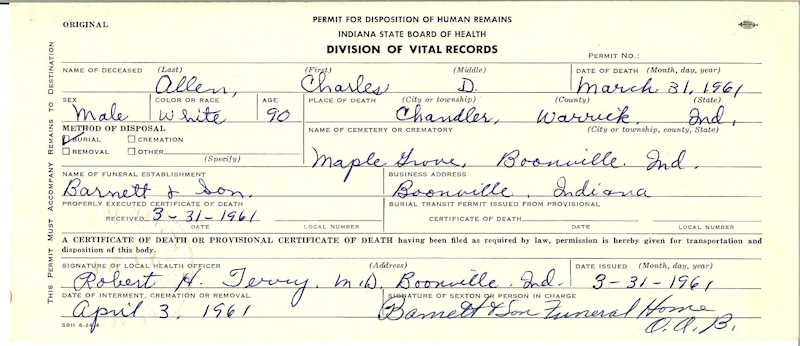 ORIGINAL
PERMIT FOR DISPOSITION OF HUMAN REMAINS
INDIANA STATE BOARD OF HEALTH
DIVISION OF VITAL RECORDS
PERMIT NO.:
THIS PERMIT MUST ACCOMPANY REMAINS TO DESTINATION
NAME OF DECEASED (Last) (First) (Middle) DATE OF DEATH (Month, day, year)
Allen, Charles D. March 31, 1961
SEX COLOR OR RACE AGE, PLACE OF DEATH (City or township) (County) (State)
Male White 90 Chandler, Warrick, Ind.
METHOD OF DISPOSAL NAME OF CEMETERY OR CREMATORY (City or township, county, State)
BURIAL CREMATION
REMOVAL OTHER (Specify)
Maple Grove, Boonville. Ind.
NAME OF FUNERAL ESTABLISHMENT BUSINESS ADDRESS
Barnett & Son. Boonville. Indiana
PROPERLY EXECUTED CERTIFICATE OF DEATH BURIAL TRANSIT PERMIT ISSUED FROM PROVISIONAL
RECEIVED 3-31-1961 CERTIFICATE OF DEATH
DATE LOCAL NUMBER DATE LOCAL NUMBER
A CERTIFICATE OF DEATH OR PROVISIONAL CERTIFICATE OF DEATH having been filed as required by law, permission is hereby given for transportation and
disposition of this body.
SIGNATURE OF LOCAL HEALTH OFFICER (Address) DATE ISSUED (Month, day, year)
Robert H. Terry. M.D. Boonville. Ind. 3-31-1961
DATE OF INTERMENT, CREMATION OR REMOVAL SIGNATURE OF SEXTON OR PERSON IN CHARGE
April 3, 1961 Barnett & Son Funeral Home
O.A.B.
SBH 6-24-4